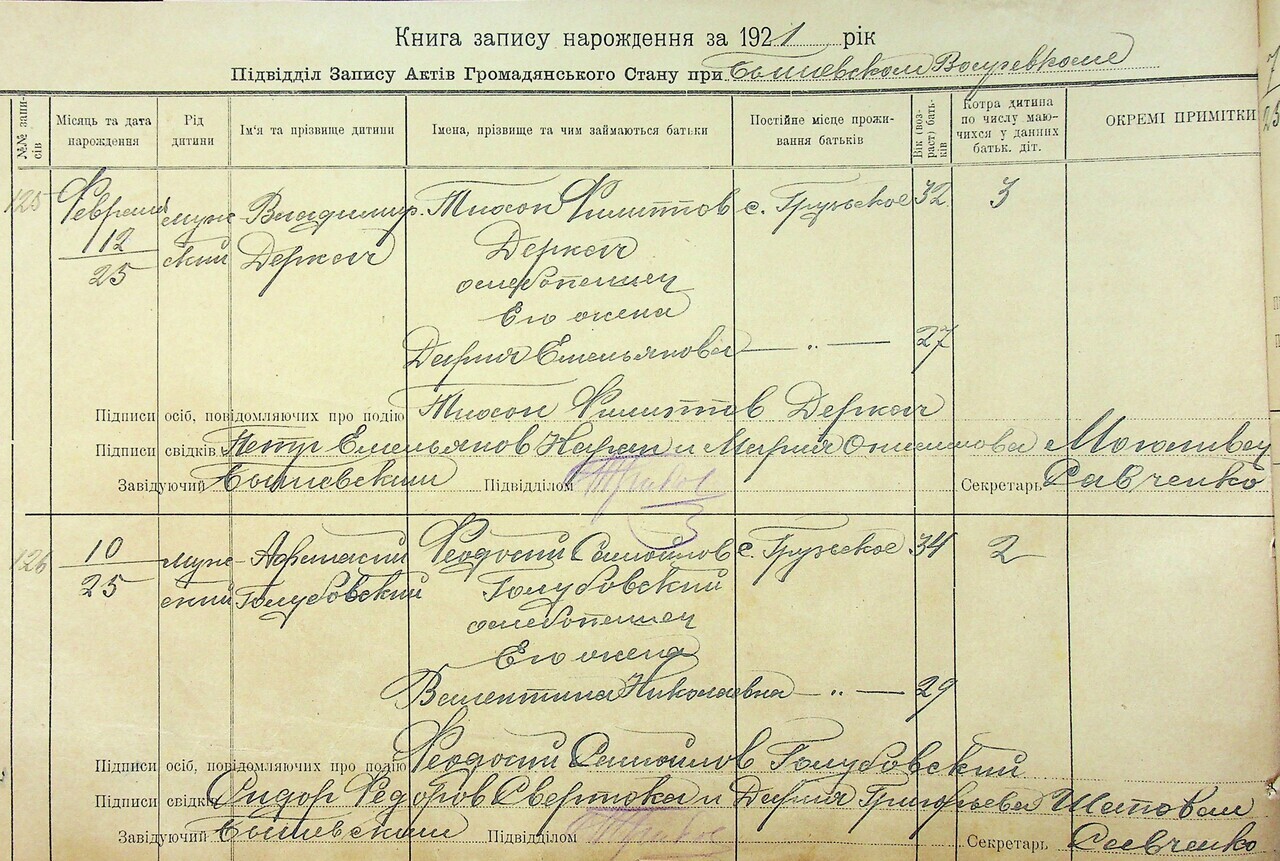 Книга запису нарождення за 1921 рік
Підвідділ Запису Актів Громадянського Стану при Бышевском Волревкоме
№№ записів
Місяць та дата нарождення
Рід дитини
Ім'я та прізвище дитини
Імена, прізвище та чим займаються батьки
Постійне місце проживання батьків
Вік (возраст) батьків
Котра дитина по числу маючихся у данних батьк. діт.
ОКРЕМІ ПРИМІТКИ
125 Февраля мужс- Владимир Тихон Филиппов с. Грузское 32 3
12 ский Деркач Деркач
25 хлебопашец
Его жена
Дария Емельянова — „ — 27
Підписи осіб, повідомляючих про подію Тихон Филиппов Деркач
Підписи свідків Петр Емельянов и Мария
Завідуючий Бышевский Підвідділом Секретарь Савченко
126 10 мужс- Афанасий Феодосий Самойлов с. Грузское 34 2
25 ский Голубовский Голубовский
хлебопашец
Его жена
Валентина Николаевна — „ — 29
Підписи осіб, повідомляючих про подію Феодосий Самойлов Голубовский
Підписи свідків Сидор Федоров и Дария Григорьева Шаповал
Завідуючий Бышевский Підвідділом Секретарь Савченко